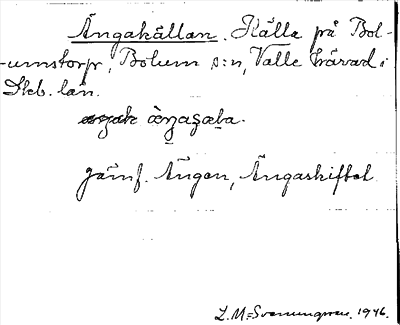 Ängakällan. Källa på Bol-
-umstorp, Bolum s:n, Valle härad i
Skb. län.
äŋaʂæla.
jämf. Ängen, Ängaskiftet
L. M. Svenungsson. 1946.